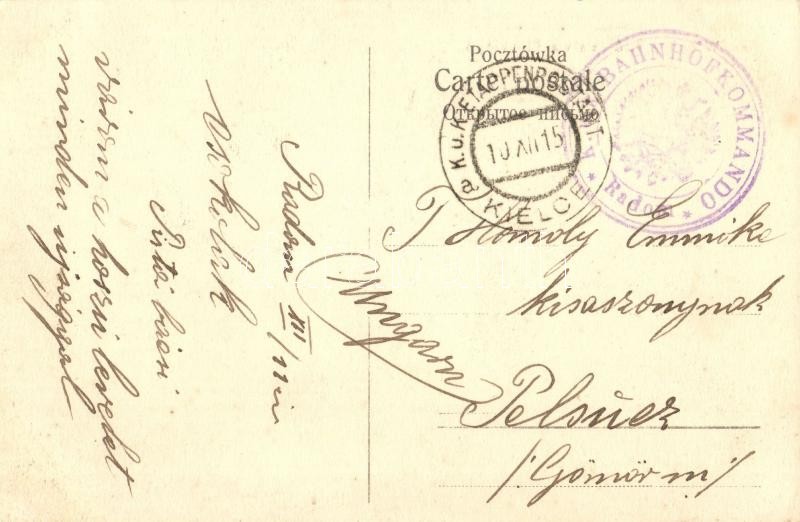 Pocztówka
Carte postale
Открытое письмо
K.u.K. ETAPPENPOSTAMT
10 XII 15
KIELCE
BAHNHOFKOMMANDO
Radom
T Homoly Emmike
kisaszonynak
Pelsücz
/: Gömör m :/
Ungarn
Radom XII/11 én
Pista bácsi
várom a hosszú levelet
minden ujsággal